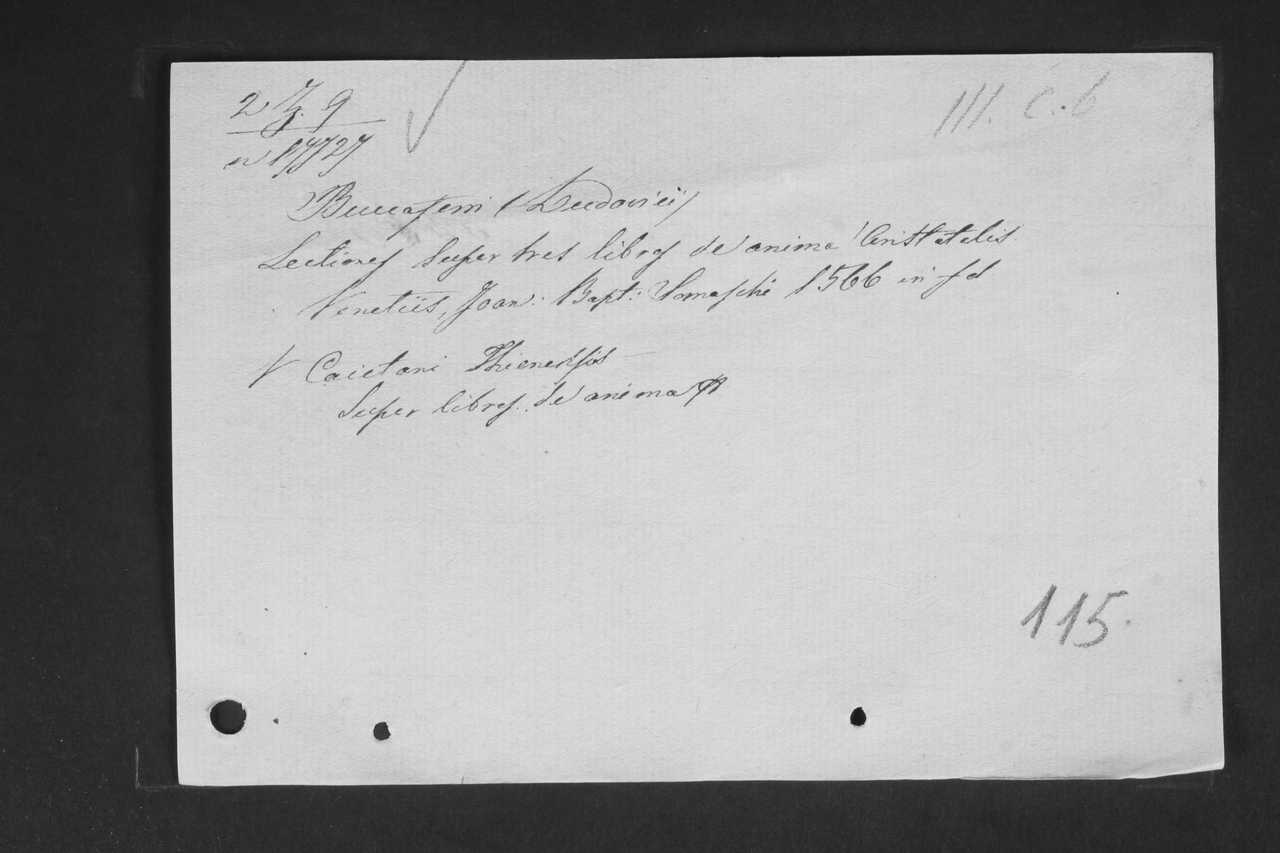 2 Z. 9
III. C. 6
Buccaferri (Ludovici)
Lectiones super tres libros de anima Aristotelis
Venetiis, Joan: Bapt: Somaschi 1566 in fol
V Caietani Thienensis
super libros de anima
115.